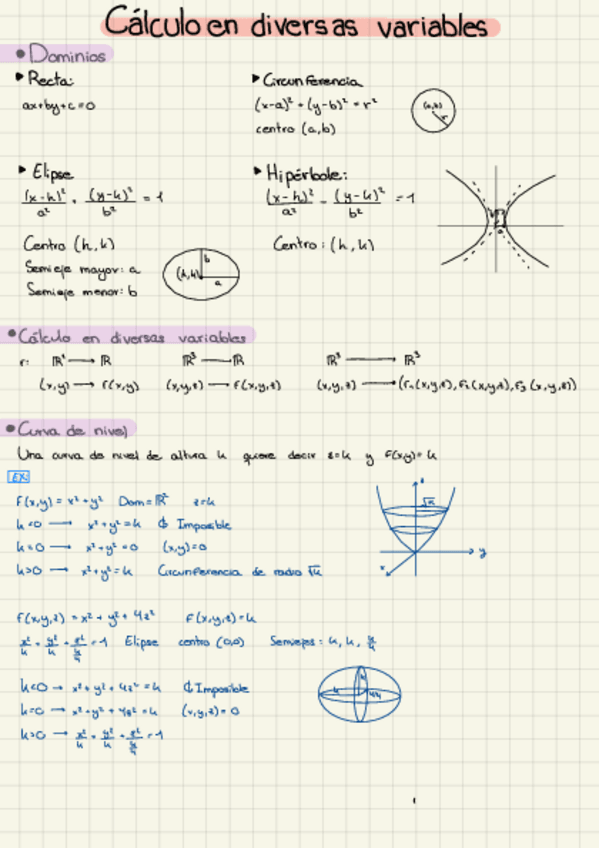 Cálculo en diversas variables
• Dominios
▸ Recta:
ax+by+c=0
▸ Circunferencia
(x-a)² + (y-b)² = r²
centro (a,b)
(a,b)
r
▸ Elipse
(x-h)²/a² + (y-k)²/b² = 1
Centro (h,k)
Semieje mayor: a
Semieje menor: b
(h,k)
b
a
▸ Hipérbole:
(x-h)²/a² - (y-k)²/b² = 1
Centro: (h,k)
• Cálculo en diversas variables
r: ℝ² → ℝ ℝ³ → ℝ ℝ³ → ℝ³
(x,y) → f(x,y) (x,y,z) → f(x,y,z) (x,y,z) → (F₁(x,y,z), F₂(x,y,z), F₃(x,y,z))
• Curva de nivel
Una curva de nivel de altura k quiere decir z=k y f(x,y)=k
EX:
f(x,y) = x² + y² Dom=ℝ² z=k
k<0 → x²+y²=k Imposible
k=0 → x²+y²=0 (x,y)=0
k>0 → x²+y²=k Circunferencia de radio √k
z
√k
y
x
f(x,y,z) = x² + y² + 4z² f(x,y,z)=k
x²/k + y²/k + z²/(k/4) = 1 Elipse centro (0,0) Semiejes: k, k, k/4
k<0 → x²+y²+4z²=k Imposible
k=0 → x²+y²+4z²=k (x,y,z)=0
k>0 → x²/k + y²/k + z²/(k/4) = 1